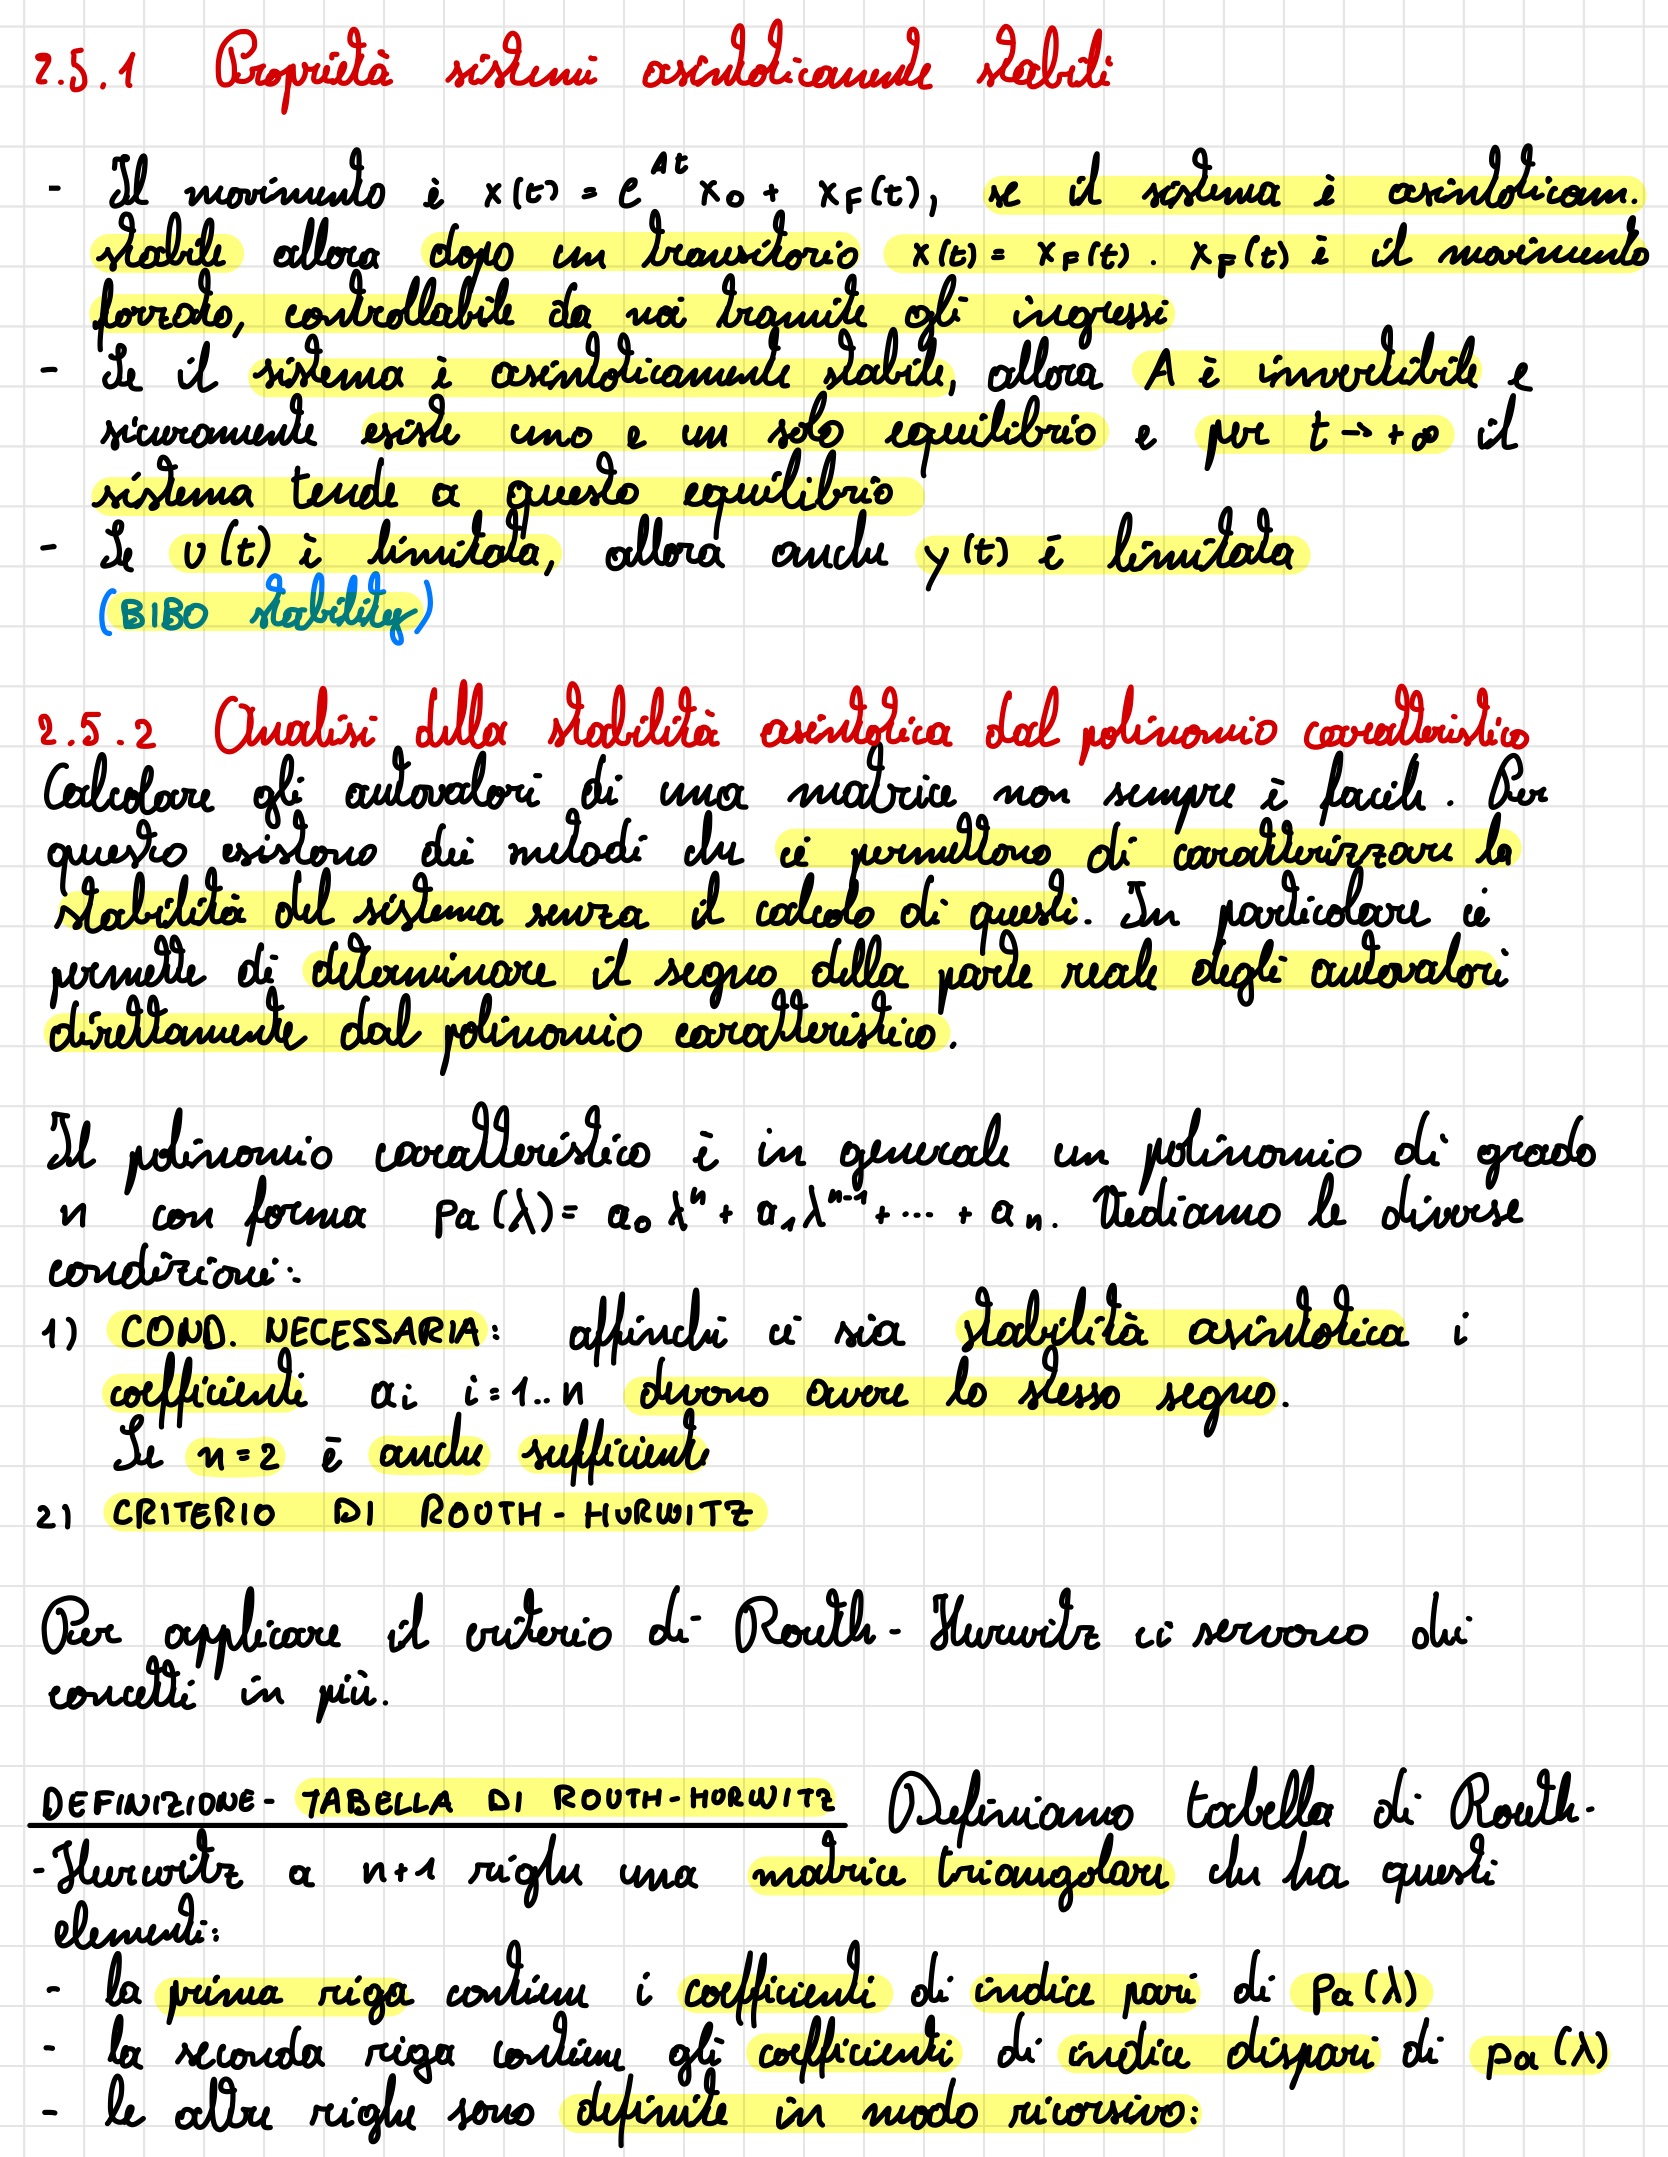 2.5.1 Proprietà sistemi asintoticamente stabili
- Il movimento è x(t) = e^{At} x_0 + x_F(t), se il sistema è asintoticam.
stabile allora dopo un transitorio x(t) = x_F(t). x_F(t) è il movimento
forzato, controllabile da noi tramite gli ingressi
- Se il sistema è asintoticamente stabile, allora A è invertibile e
sicuramente esiste uno e un solo equilibrio e per t → +∞ il
sistema tende a questo equilibrio
- Se u(t) è limitata, allora anche y(t) è limitata
(BIBO stability)
2.5.2 Analisi della stabilità asintotica dal polinomio caratteristico
Calcolare gli autovalori di una matrice non sempre è facile. Per
questo esistono dei metodi che ci permettono di caratterizzare la
stabilità del sistema senza il calcolo di questi. In particolare ci
permette di determinare il segno della parte reale degli autovalori
direttamente dal polinomio caratteristico.
Il polinomio caratteristico è in generale un polinomio di grado
n con forma pa(λ) = a_0 λ^n + a_1 λ^{n-1} + ... + a_n. Vediamo le diverse
condizioni:
1) COND. NECESSARIA: affinché ci sia stabilità asintotica i
coefficienti a_i i=1..n devono avere lo stesso segno.
Se n=2 è anche sufficiente
2) CRITERIO DI ROUTH-HURWITZ
Per applicare il criterio di Routh-Hurwitz ci servono dei
concetti in più.
DEFINIZIONE - TABELLA DI ROUTH-HURWITZ Definiamo tabella di Routh-
-Hurwitz a n+1 righe una matrice triangolare che ha questi
elementi:
- la prima riga contiene i coefficienti di indice pari di pa(λ)
- la seconda riga contiene gli coefficienti di indice dispari di pa(λ)
- le altre righe sono definite in modo ricorsivo: